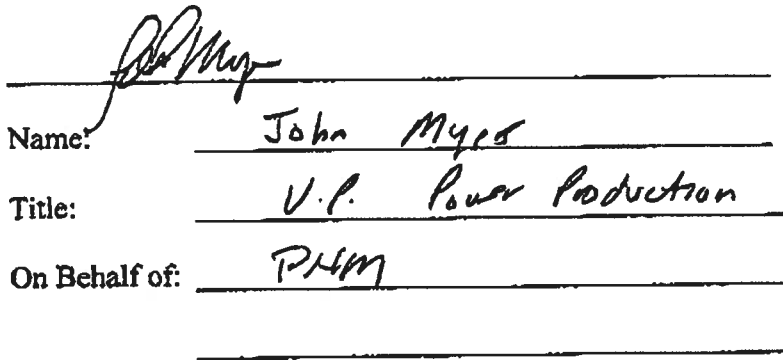 Name: John Myers
Title: V.P. Power Production
On Behalf of: PNM